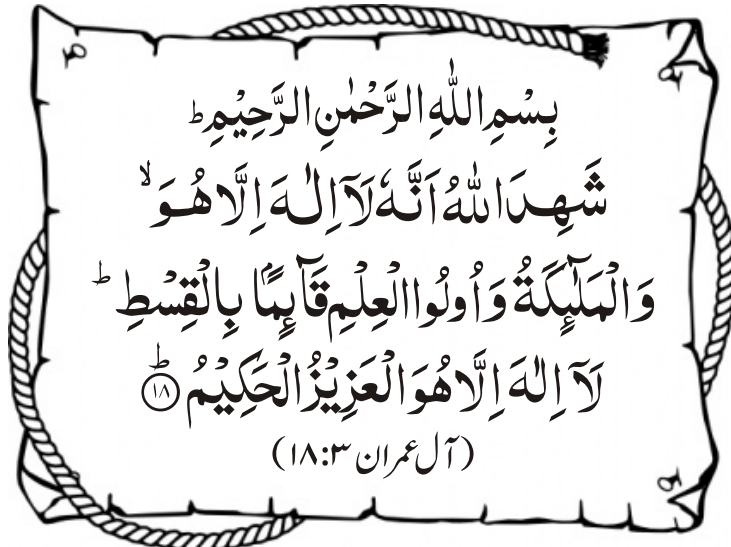 بِسْمِ اللّٰهِ الرَّحْمٰنِ الرَّحِيْمِ ؕ
شَهِدَ اللّٰهُ اَنَّهٗ لَاۤ اِلٰهَ اِلَّا هُوَ ۙ
وَالْمَلٰٓئِكَةُ وَ اُولُوا الْعِلْمِ قَآئِمًۢا بِالْقِسْطِ ؕ
لَاۤ اِلٰهَ اِلَّا هُوَ الْعَزِيْزُ الْحَكِيْمُ ؕ ۱۸
(آل عمران ۱۸:۳)